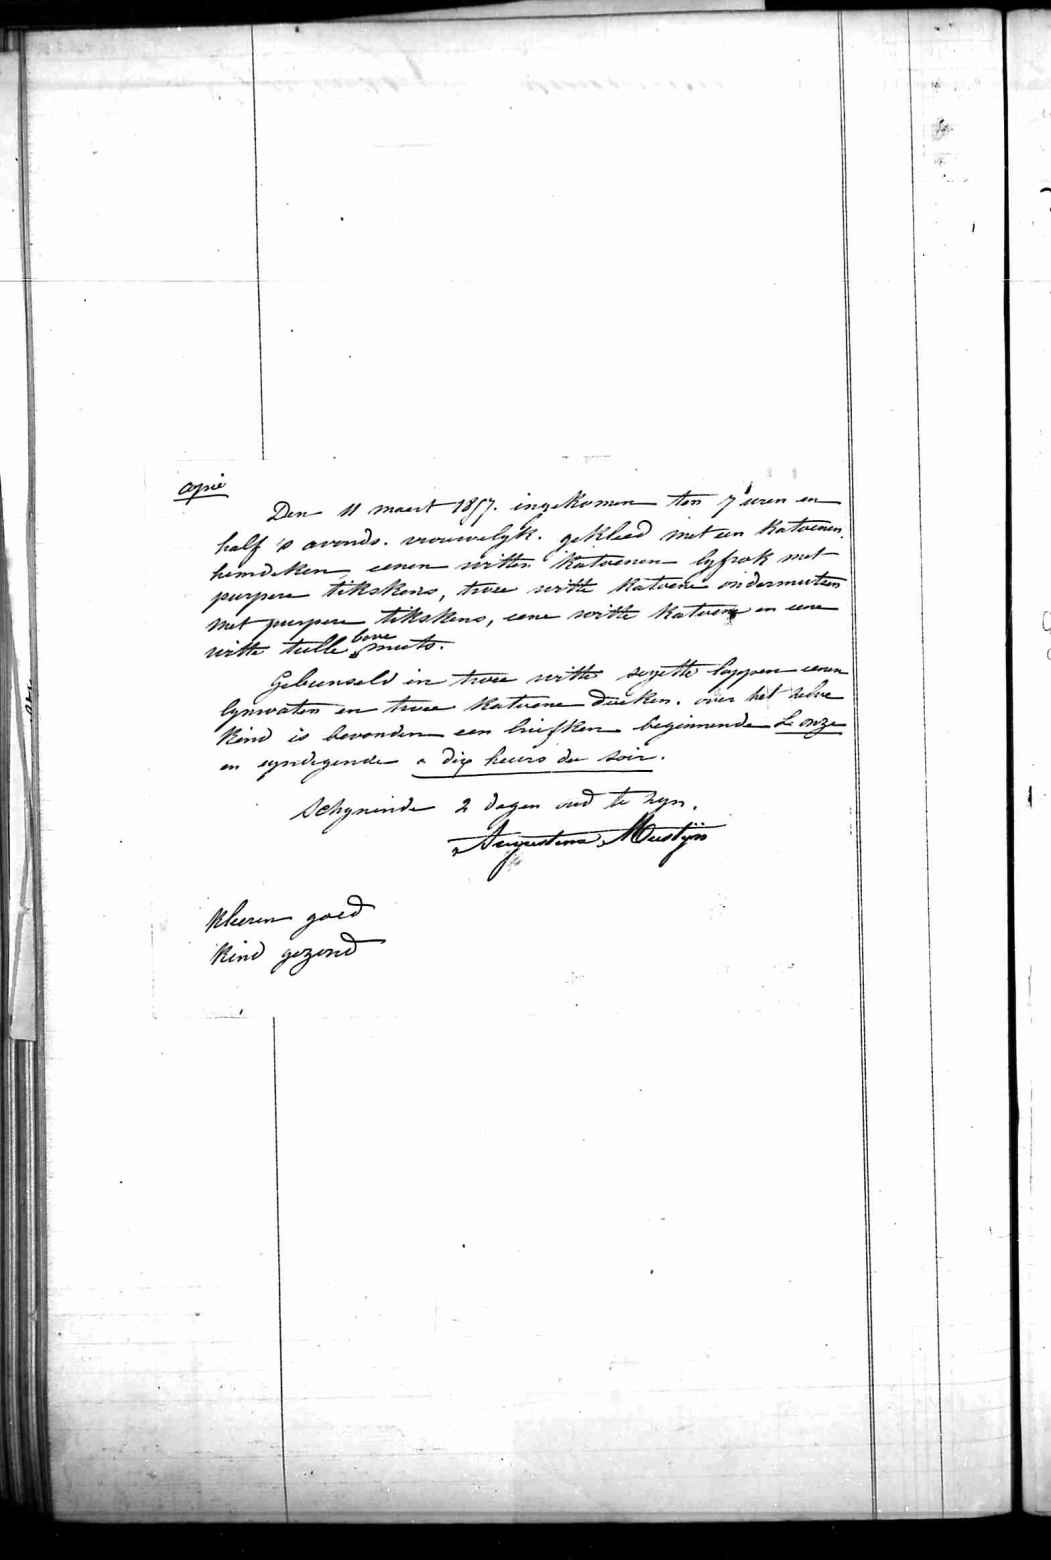 copie
Den 11 maert 1857. ingekomen ten 7 uren en
half 's avonds. vrouwelyk. gekleed met een katoenen
hemdeken, eenen witten katoenen lyfrok met
purpere tikskens, twee witte katoene ondermutsen
met purpere tikskens, eene witte katoene en eene
witte tulle bove muts.
Gebunseld in twee witte sazette lappen eenen
lynwaten en twee katoene doeken. over het zelve
kind is bevonden een briefken beginnende Le onze
en eyndigende a dix heures du soir.
Schynende 2 dagen oud te zyn.
Augustina Mustyn
kleeren goed
kind gezond